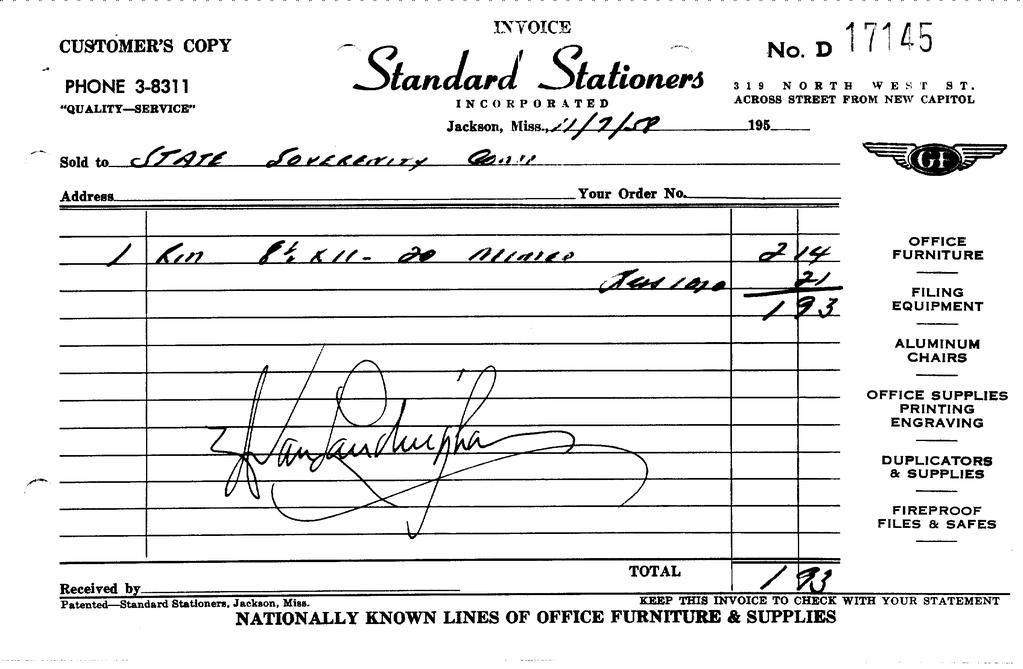 INVOICE
CUSTOMER'S COPY
No. D 17145
Standard Stationers
PHONE 3-8311
319 NORTH WEST ST.
"QUALITY—SERVICE"
INCORPORATED
ACROSS STREET FROM NEW CAPITOL
Jackson, Miss., 11/7/58 195
Sold to STATE SOVERENITY Com
GF
Address Your Order No.
1 Rm 8½ x 11 - 20 Mimeo 2 14
Less 10% 21
1 93
OFFICE
FURNITURE
FILING
EQUIPMENT
ALUMINUM
CHAIRS
OFFICE SUPPLIES
PRINTING
ENGRAVING
DUPLICATORS
& SUPPLIES
FIREPROOF
FILES & SAFES
TOTAL 1 93
Received by
Patented—Standard Stationers, Jackson, Miss.
KEEP THIS INVOICE TO CHECK WITH YOUR STATEMENT
NATIONALLY KNOWN LINES OF OFFICE FURNITURE & SUPPLIES